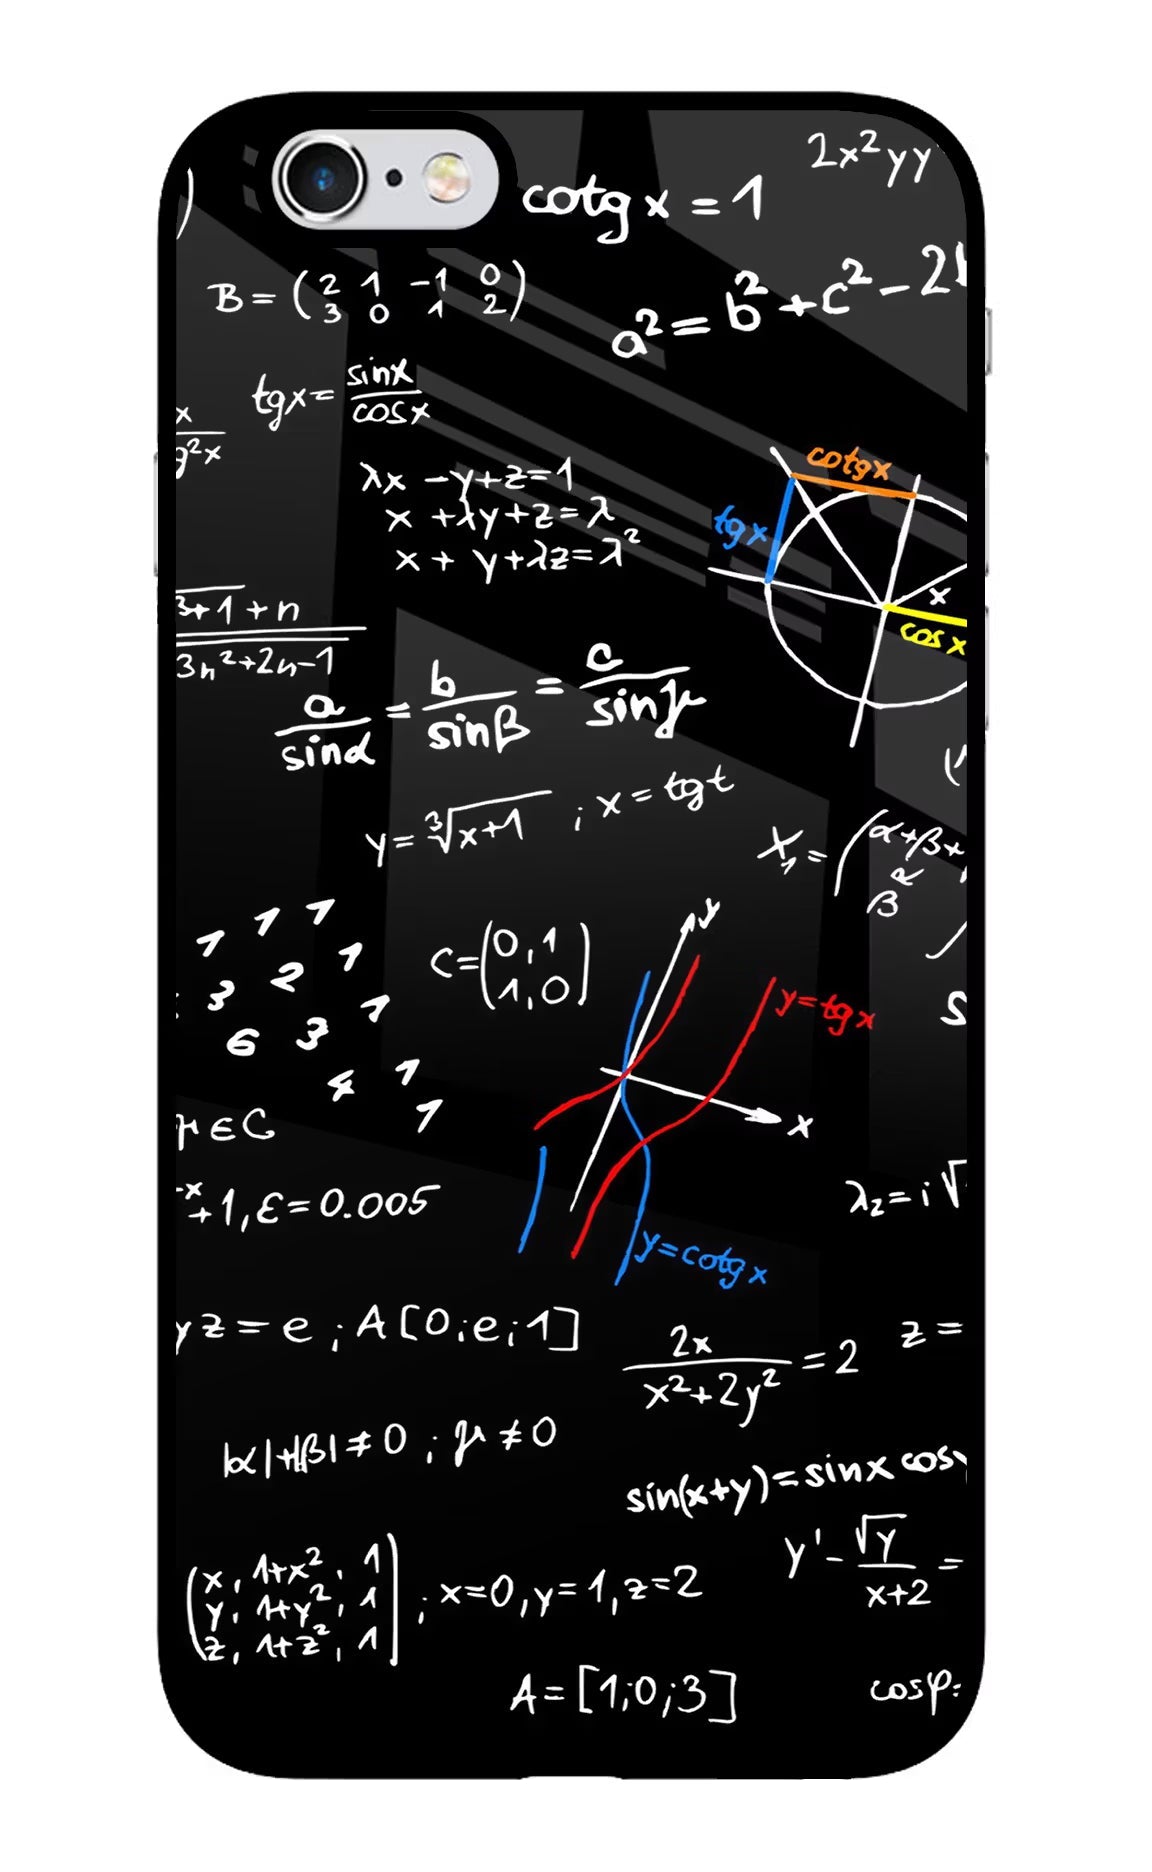 2x²yy
cotg x = 1
B = (2 1 -1 0
3 0 1 2)
a² = b² + c² - 2
tgx = sinx
cosx
x
g²x
λx - y + z = 1
x + λy + z = λ
x + y + λz = λ²
cotgx
tgx
x
cos x
3+1 + n
3n²+2n-1
a/sinα = b/sinβ = c/sinγ
y = ∛x+1 ; x = tgt
X₁ = (α+β+
β α
1 1 1
3 2 1
6 3 1
4 1
1
C = (0,1
1,0)
y
y = tgx
x
y = cotg x
S
∈ C
-x
+1, ε = 0.005
λ₂ = i√
yz = e ; A[0;e;1]
2x
x²+2y² = 2
z =
|α|+|β| ≠ 0 ; γ ≠ 0
sin(x+y) = sinx cosy
(x, 1+x², 1
y, 1+y², 1
z, 1+z², 1) ; x=0, y=1, z=2
y' - √y
x+2 =
A = [1;0;3]
cosφ =